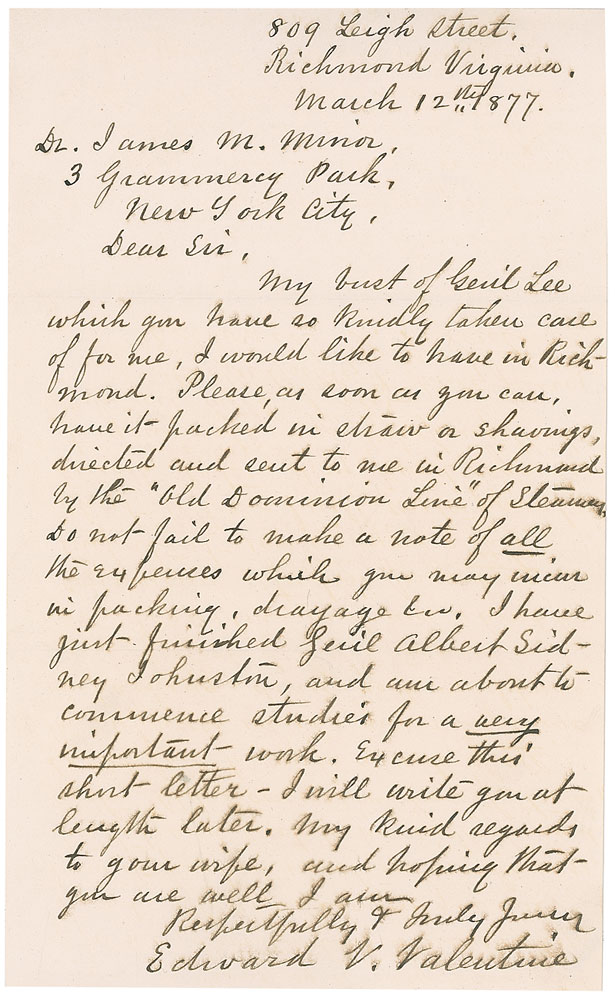 809 Leigh Street.
Richmond Virginia.
March 12th 1877.
Dr. James M. Minor,
3 Grammercy Park,
New York City,
Dear Sir,
My bust of Genl Lee
which you have so kindly taken care
of for me, I would like to have in Rich-
mond. Please, as soon as you can,
have it packed in straw or shavings,
directed and sent to me in Richmond
by the "Old Dominion Line" of Steamers.
Do not fail to make a note of all
the expenses which you may incur
in packing, drayage &c. I have
just finished Genl Albert Sid-
ney Johnston, and am about to
commence studies for a very
important work. Excuse this
short letter - I will write you at
length later. My kind regards
to your wife, and hoping that
you are well I am
Respectfully & Truly Yours
Edward V. Valentine